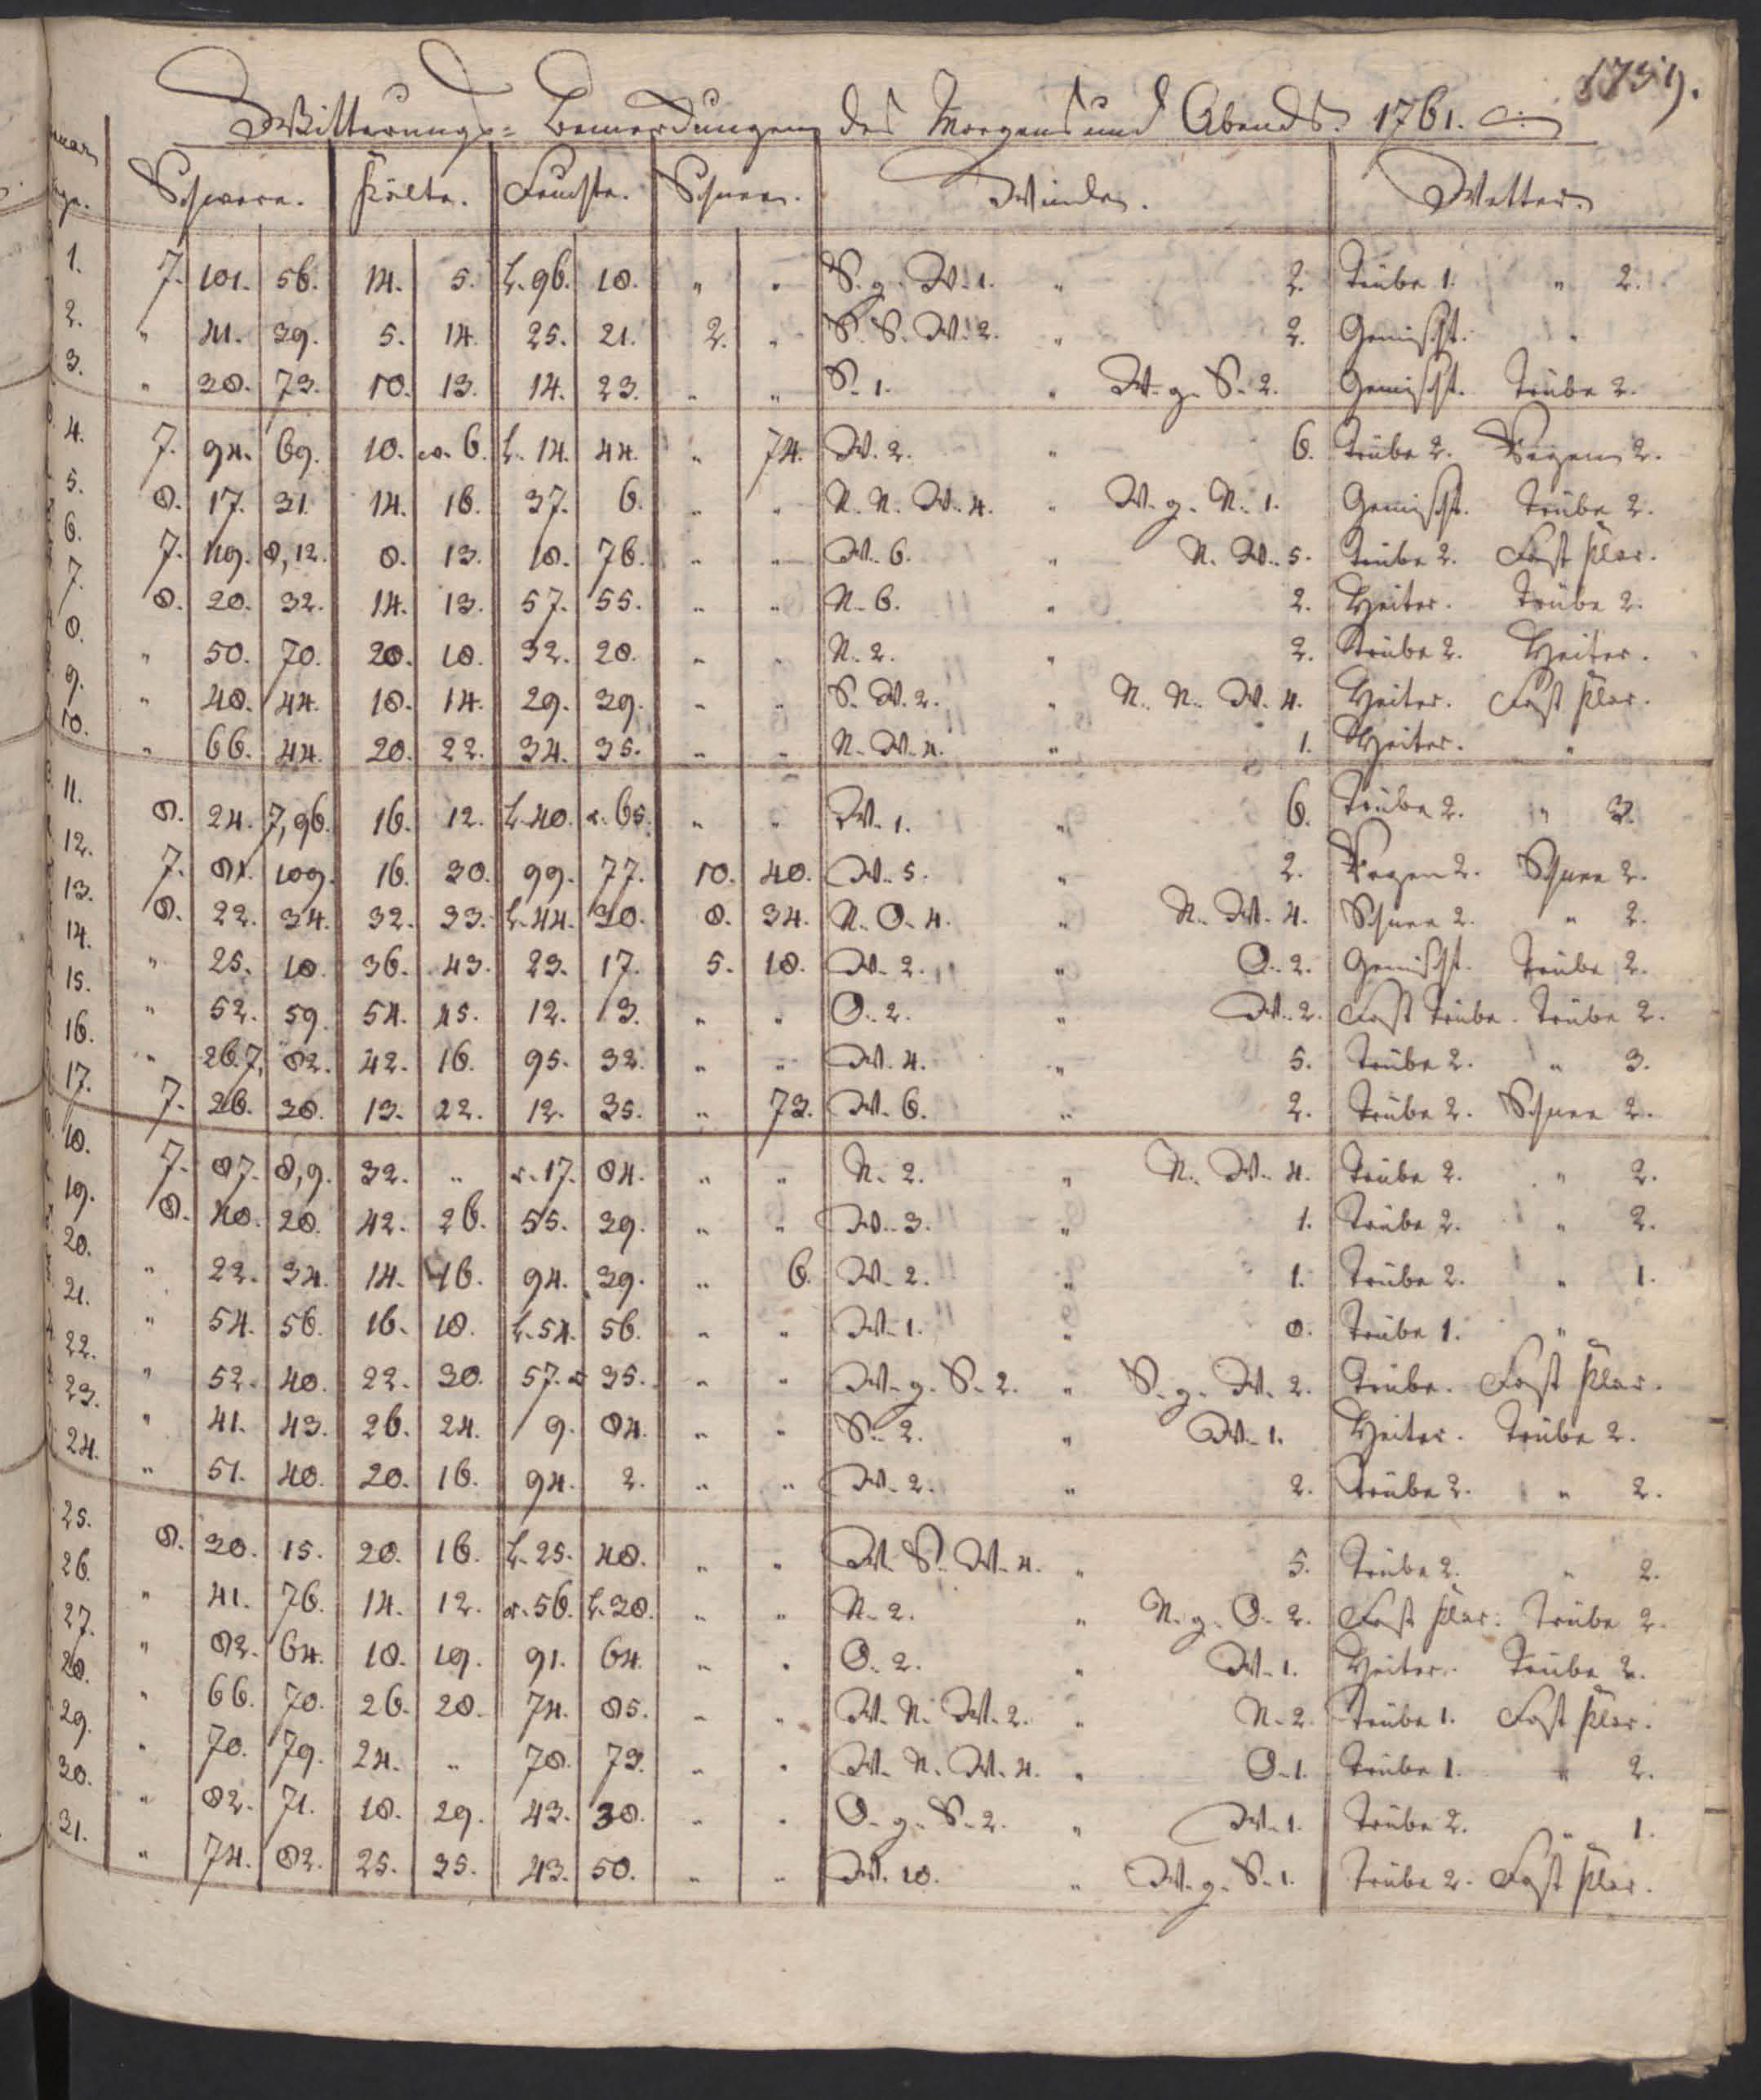 1759.
Witterungs= Bemerckungen des Morgens und Abends. 1761.
Schwere. Kälte. Feuchte. Schnee. Winde. Wetter.
1. 7. 101. 56. 14. 5. L. 96. 18. " " S. g. W. 1. " 2. Trübe 1. " 2.
2. " 41. 39. 5. 14. 25. 21. 2. " S. S. W. 2. " 2. Gemischt. "
3. " 38. 73. 10. 13. 14. 23. " " S. 1. " W. g. S. 2. Gemischt. Trübe 2.
4. 7. 94. 69. 10. 6. L. 14. 44. " 74. W. 2. " 6. Trübe 2. Regen 2.
5. 8. 17. 31. 14. 16. 37. 6. " " N. N. W. 4. " W. g. N. 1. Gemischt. Trübe 2.
6. 7. 119. 8,12. 8. 13. 18. 76. " " W. 6. " N. W. 5. Trübe 2. Fast klar.
7. 8. 20. 32. 14. 13. 57. 55. " " N. 6. " 2. Heiter. Trübe 2.
8. " 50. 70. 20. 18. 32. 28. " " N. 2. " 2. Trübe 2. Heiter.
9. " 48. 44. 18. 14. 29. 39. " " S. W. 2. " N. N. W. 4. Heiter. Fast klar.
10. " 66. 44. 20. 22. 34. 35. " " N. W. 4. " 1. Heiter. "
11. 8. 24. 7,96. 16. 12. L. 40. r. 65. " " W. 1. " 6. Trübe 2. " 3.
12. 7. 81. 109. 16. 30. 99. 77. 10. 40. W. 5. " 2. Regen 2. Schnee 2.
13. 8. 22. 34. 32. 33. L. 44. 30. 8. 34. N. O. 4. " N. W. 4. Schnee 2. " 2.
14. " 25. 18. 36. 43. 23. 17. 5. 18. W. 2. " O. 2. Gemischt. Trübe 2.
15. " 52. 59. 54. 45. 12. 13. " " O. 2. " W. 2. Fast Trübe. Trübe 2.
16. " 26. 7, 82. 42. 16. 95. 32. " " W. 4. " 5. Trübe 2. " 3.
17. 7. 26. 38. 13. 22. 12. 35. " 73. W. 6. " 2. Trübe 2. Schnee 2.
18. 7. 87. 8,9. 32. " r. 17. 84. " " N. 2. " N. W. 4. Trübe 2. " 2.
19. 8. 48. 28. 42. 26. 55. 39. " " W. 3. " 1. Trübe 2. " 2.
20. " 22. 34. 14. 16. 94. 39. " 6. W. 2. " 1. Trübe 2. " 1.
21. " 54. 56. 16. 18. L. 54. 56. " " W. 1. " 0. Trübe 1. "
22. " 52. 40. 22. 30. 57. r 35. " " W. g. S. 2. " S. g. W. 2. Trübe. Fast klar.
23. " 41. 43. 26. 24. 9. 84. " " S. 2. " W. 1. Heiter. Trübe 2.
24. " 51. 40. 20. 16. 94. 2. " " W. 2. " 2. Trübe 2. " 2.
25. 8. 30. 15. 20. 16. L. 25. 48. " " W. S. W. 4. " 5. Trübe 2. " 2.
26. " 41. 76. 14. 12. r. 56. L. 30. " " N. 2. " N. g. O. 2. Fast klar. Trübe 2.
27. " 82. 64. 18. 19. 91. 64. " " O. 2. " W. 1. Heiter. Trübe 2.
28. " 66. 70. 26. 28. 74. 85. " " W. N. W. 2. " N. 2. Trübe 1. Fast klar.
29. " 70. 79. 24. " 78. 73. " " W. N. W. 4. " O. 1. Trübe 1. " 2.
30. " 82. 71. 18. 29. 43. 38. " " O. g. S. 2. " W. 1. Trübe 2. " 1.
31. " 74. 82. 25. 35. 43. 50. " " W. 10. " W. g. S. 1. Trübe 2. Fast klar.